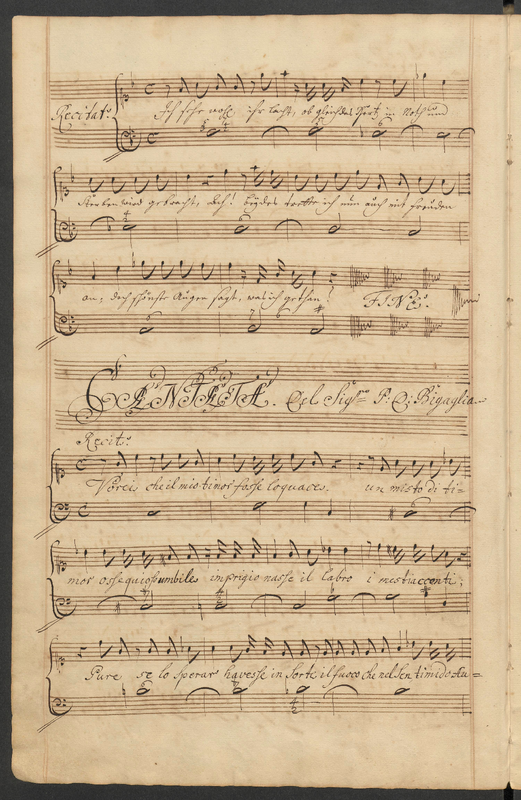 Recitat:
Ich sehe wohl ihr lacht, ob gleich das Hertz in Noth und
Sterben wird gebracht, doch! beÿdes trette ich nun auch mit freuden
an; doch schönste Augen sagt, was ich gethan! FINE.
CANTATA. Del Sig.re P: D: Bigaglia
Recit:
Vorei che il mio timor fosse loquace. un misto di ti=
mor ossequio sumbile imprigionasse il labro i mesti accenti;
Pure se lo sperar havesse in sorte il fuoco che nel sen timido